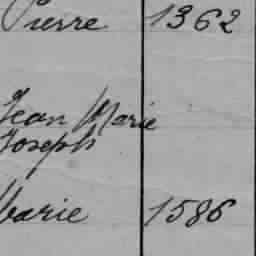 Pierre 1362
Jean Marie
Joseph
Marie 1586